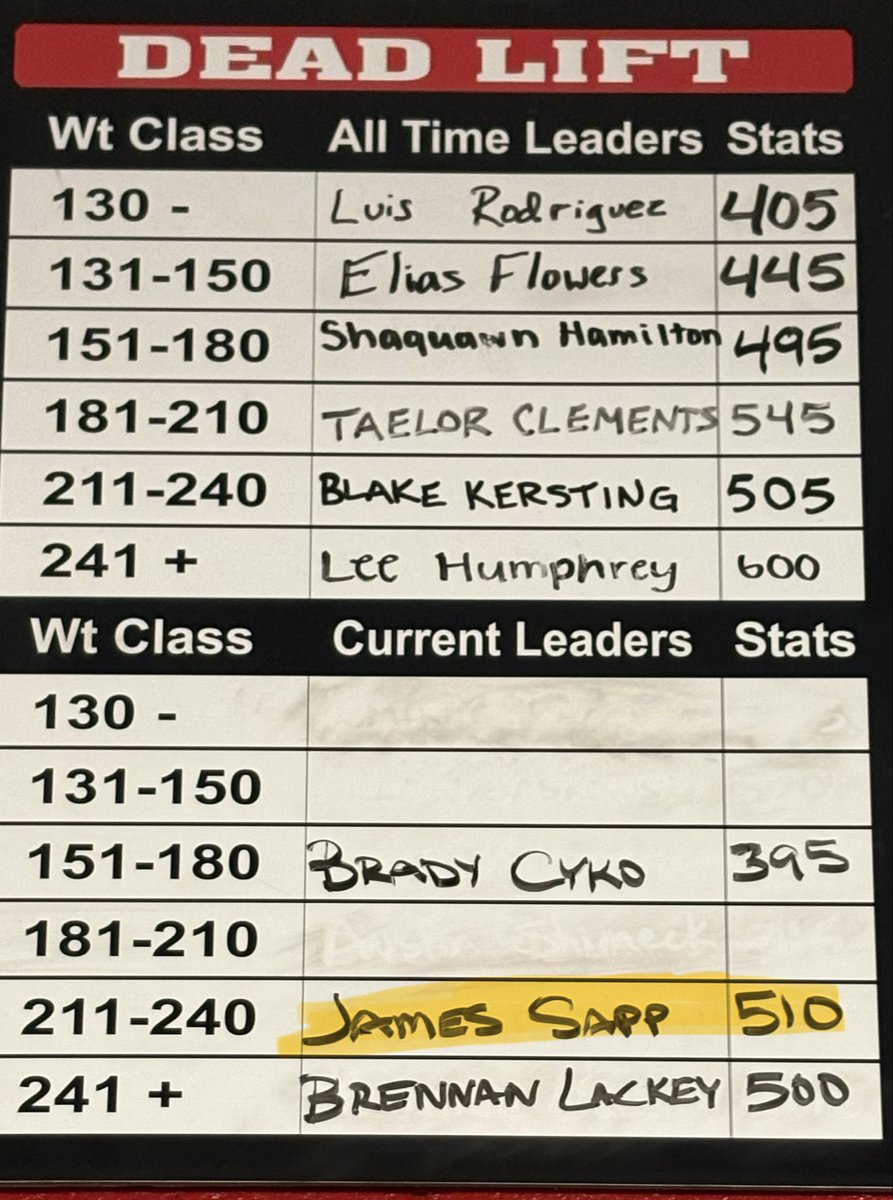 DEAD LIFT
Wt Class All Time Leaders Stats
130 - Luis Rodriguez 405
131-150 Elias Flowers 445
151-180 Shaquawn Hamilton 495
181-210 TAELOR CLEMENTS 545
211-240 BLAKE KERSTING 505
241 + Lee Humphrey 600
Wt Class Current Leaders Stats
130 -
131-150
151-180 BRADY CYKO 395
181-210
211-240 JAMES SAPP 510
241 + BRENNAN LACKEY 500